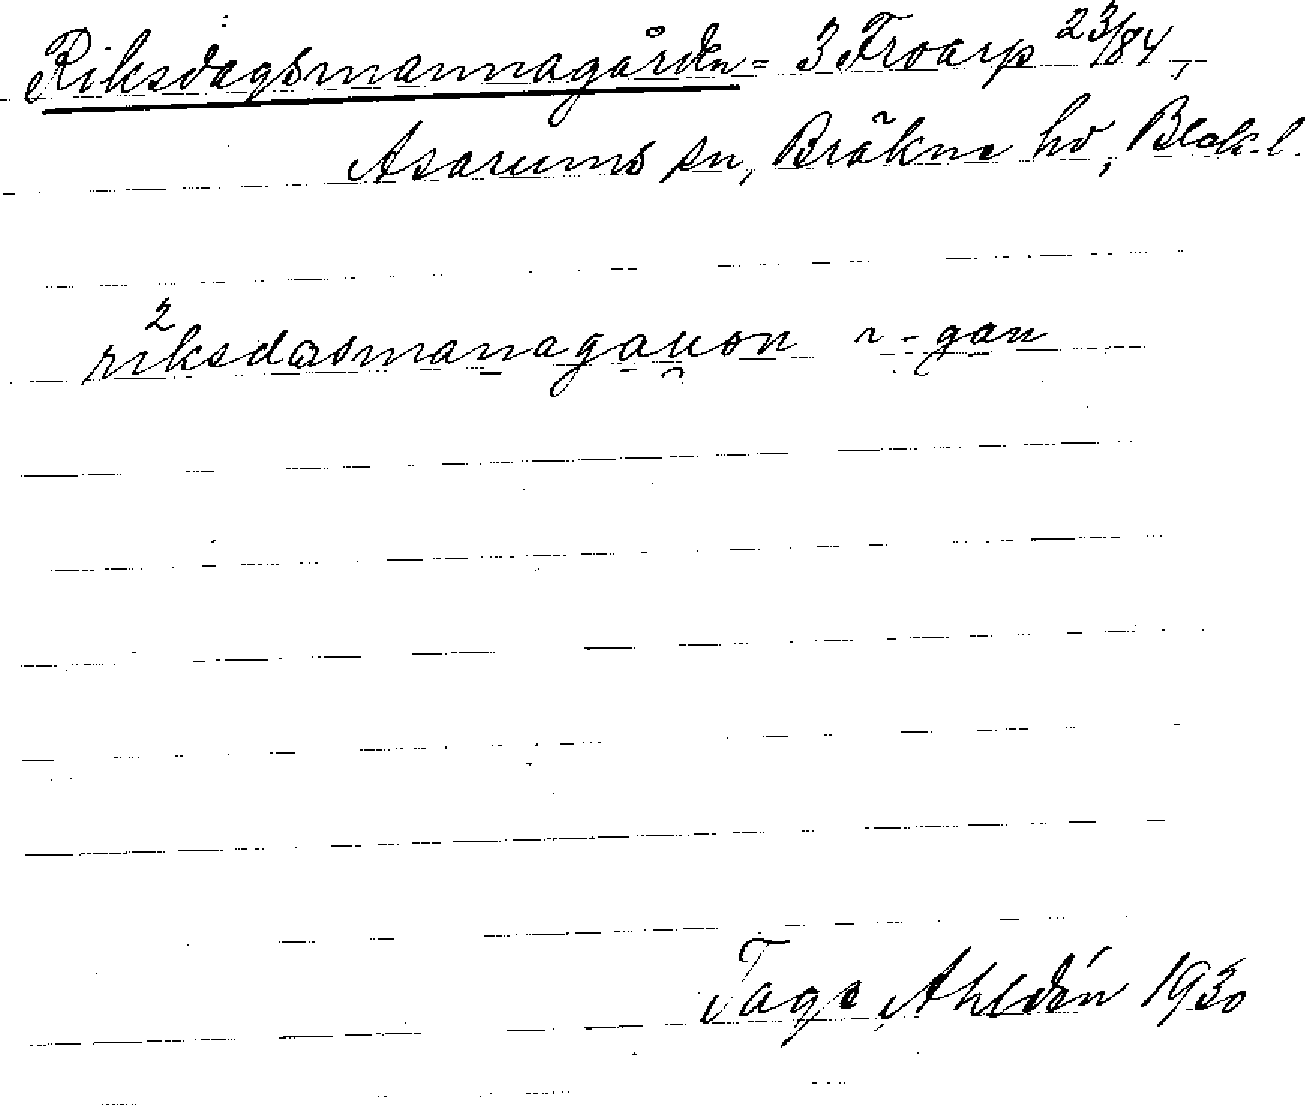 Riksdagsmannagården = 3 Froarp 23/84,
Asarums sn, Bräkne hd, Blek.l.
2riksdasmanagauon ~ -gan
Tage Ahldén 1930